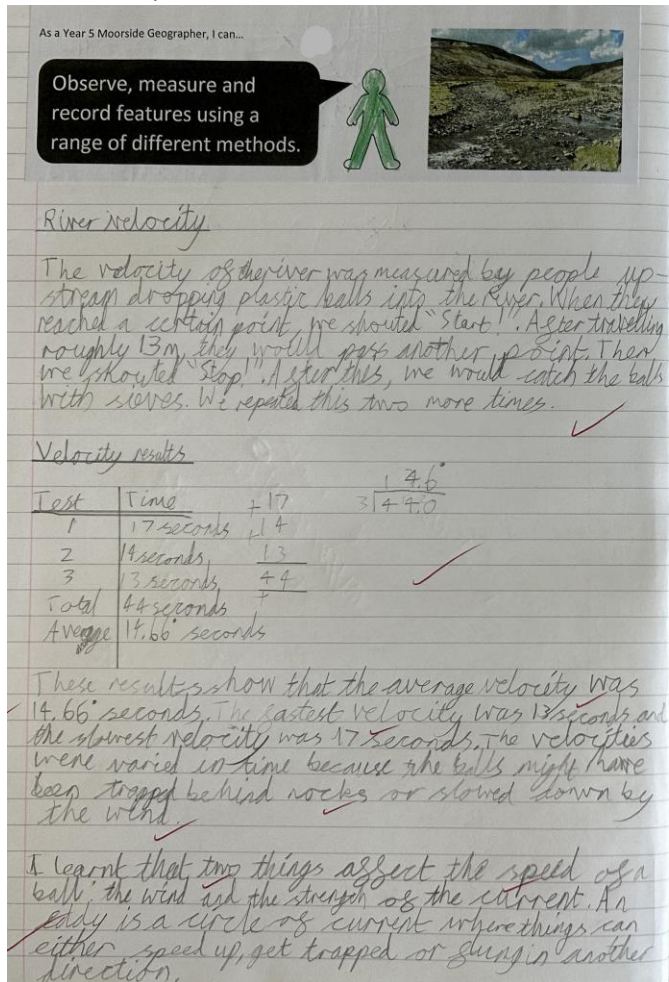 As a Year 5 Moorside Geographer, I can...
Observe, measure and
record features using a
range of different methods.
River velocity
The velocity of the river was measured by people up-
stream dropping plastic balls into the river. When they
reached a certain point, we shouted "Start!". After travelling
roughly 13m, they would pass another point. Then
we shouted "Stop!". After this, we would catch the balls
with sieves. We repeated this two more times.
Velocity results
Test | Time
1 | 17 seconds
2 | 14 seconds
3 | 13 seconds
Total | 44 seconds
Average | 14.66̇ seconds
+17
+14
13
44
14.6̇
3|44.0
These results show that the average velocity was
14.66̇ seconds. The fastest velocity was 13 seconds and
the slowest velocity was 17 seconds. The velocities
were varied in time because the balls might have
been trapped behind rocks or slowed down by
the wind.
I learnt that two things affect the speed of a
ball; the wind and the strength of the current. An
eddy is a circle of current where things can
either speed up, get trapped or flung in another
direction.